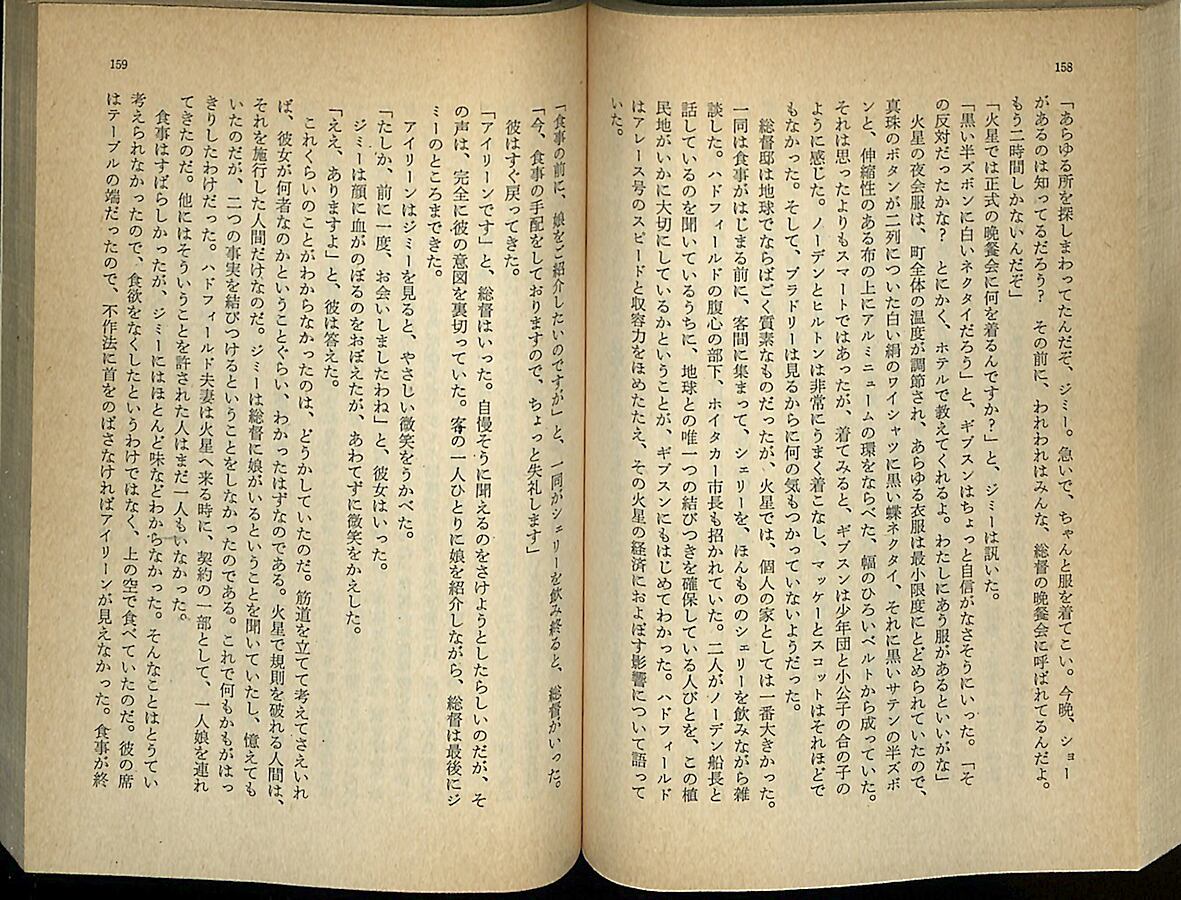 158
「あらゆる所を探しまわってたんだぞ、ジミー。急いで、ちゃんと服を着てこい。今晩、ショー
があるのは知ってるだろう？　その前に、われわれはみんな、総督の晩餐会に呼ばれてるんだよ。
もう二時間しかないんだぞ」
「火星では正式の晩餐会に何を着るんですか？」と、ジミーは訊いた。
「黒い半ズボンに白いネクタイだろう」と、ギブスンはちょっと自信がなさそうにいった。「そ
の反対だったかな？　とにかく、ホテルで教えてくれるよ。わたしにあう服があるといいがな」
　火星の夜会服は、町全体の温度が調節され、あらゆる衣服は最小限度にとどめられていたので、
真珠のボタンが二列についた白い絹のワイシャツに黒い蝶ネクタイ、それに黒いサテンの半ズボ
ンと、伸縮性のある布の上にアルミニュームの環をならべた、幅のひろいベルトから成っていた。
それは思ったよりもスマートではあったが、着てみると、ギブスンは少年団と小公子の合の子の
ように感じた。ノーデンとヒルトンは非常にうまく着こなし、マッケーとスコットはそれほどで
もなかった。そして、ブラドリーは見るからに何の気もつかっていないようだった。
　総督邸は地球でならばごく質素なものだったが、火星では、個人の家としては一番大きかった。
一同は食事がはじまる前に、客間に集まって、シェリーを、ほんもののシェリーを飲みながら雑
談した。ハドフィールドの腹心の部下、ホイタカー市長も招かれていた。二人がノーデン船長と
話しているのを聞いているうちに、地球との唯一つの結びつきを確保している人びとを、この植
民地がいかに大切にしているかということが、ギブスンにもはじめてわかった。ハドフィールド
はアレース号のスピードと収容力をほめたたえ、その火星の経済におよぼす影響について語って
いた。
159
「食事の前に、娘をご紹介したいのですが」と、一同がシェリーを飲み終ると、総督がいった。
「今、食事の手配をしておりますので、ちょっと失礼します」
　彼はすぐ戻ってきた。
「アイリーンです」と、総督はいった。自慢そうに聞えるのをさけようとしたらしいのだが、そ
の声は、完全に彼の意図を裏切っていた。客の一人ひとりに娘を紹介しながら、総督は最後にジ
ミーのところまできた。
　アイリーンはジミーを見ると、やさしい微笑をうかべた。
「たしか、前に一度、お会いしましたわね」と、彼女はいった。
　ジミーは顔に血がのぼるのをおぼえたが、あわてずに微笑をかえした。
「ええ、ありますよ」と、彼は答えた。
　これくらいのことがわからなかったのは、どうかしていたのだ。筋道を立てて考えてさえいれ
ば、彼女が何者なのかということぐらい、わかったはずなのである。火星で規則を破れる人間は、
それを施行した人間だけなのだ。ジミーは総督に娘がいるということを聞いていたし、憶えても
いたのだが、二つの事実を結びつけるということをしなかったのである。これで何もかもがはっ
きりしたわけだった。ハドフィールド夫妻は火星へ来る時に、契約の一部として、一人娘を連れ
てきたのだ。他にはそういうことを許された人はまだ一人もいなかった。
　食事はすばらしかったが、ジミーにはほとんど味などわからなかった。そんなことはとうてい
考えられなかったので、食欲をなくしたというわけではなく、上の空で食べていたのだ。彼の席
はテーブルの端だったので、不作法に首をのばさなければアイリーンが見えなかった。食事が終